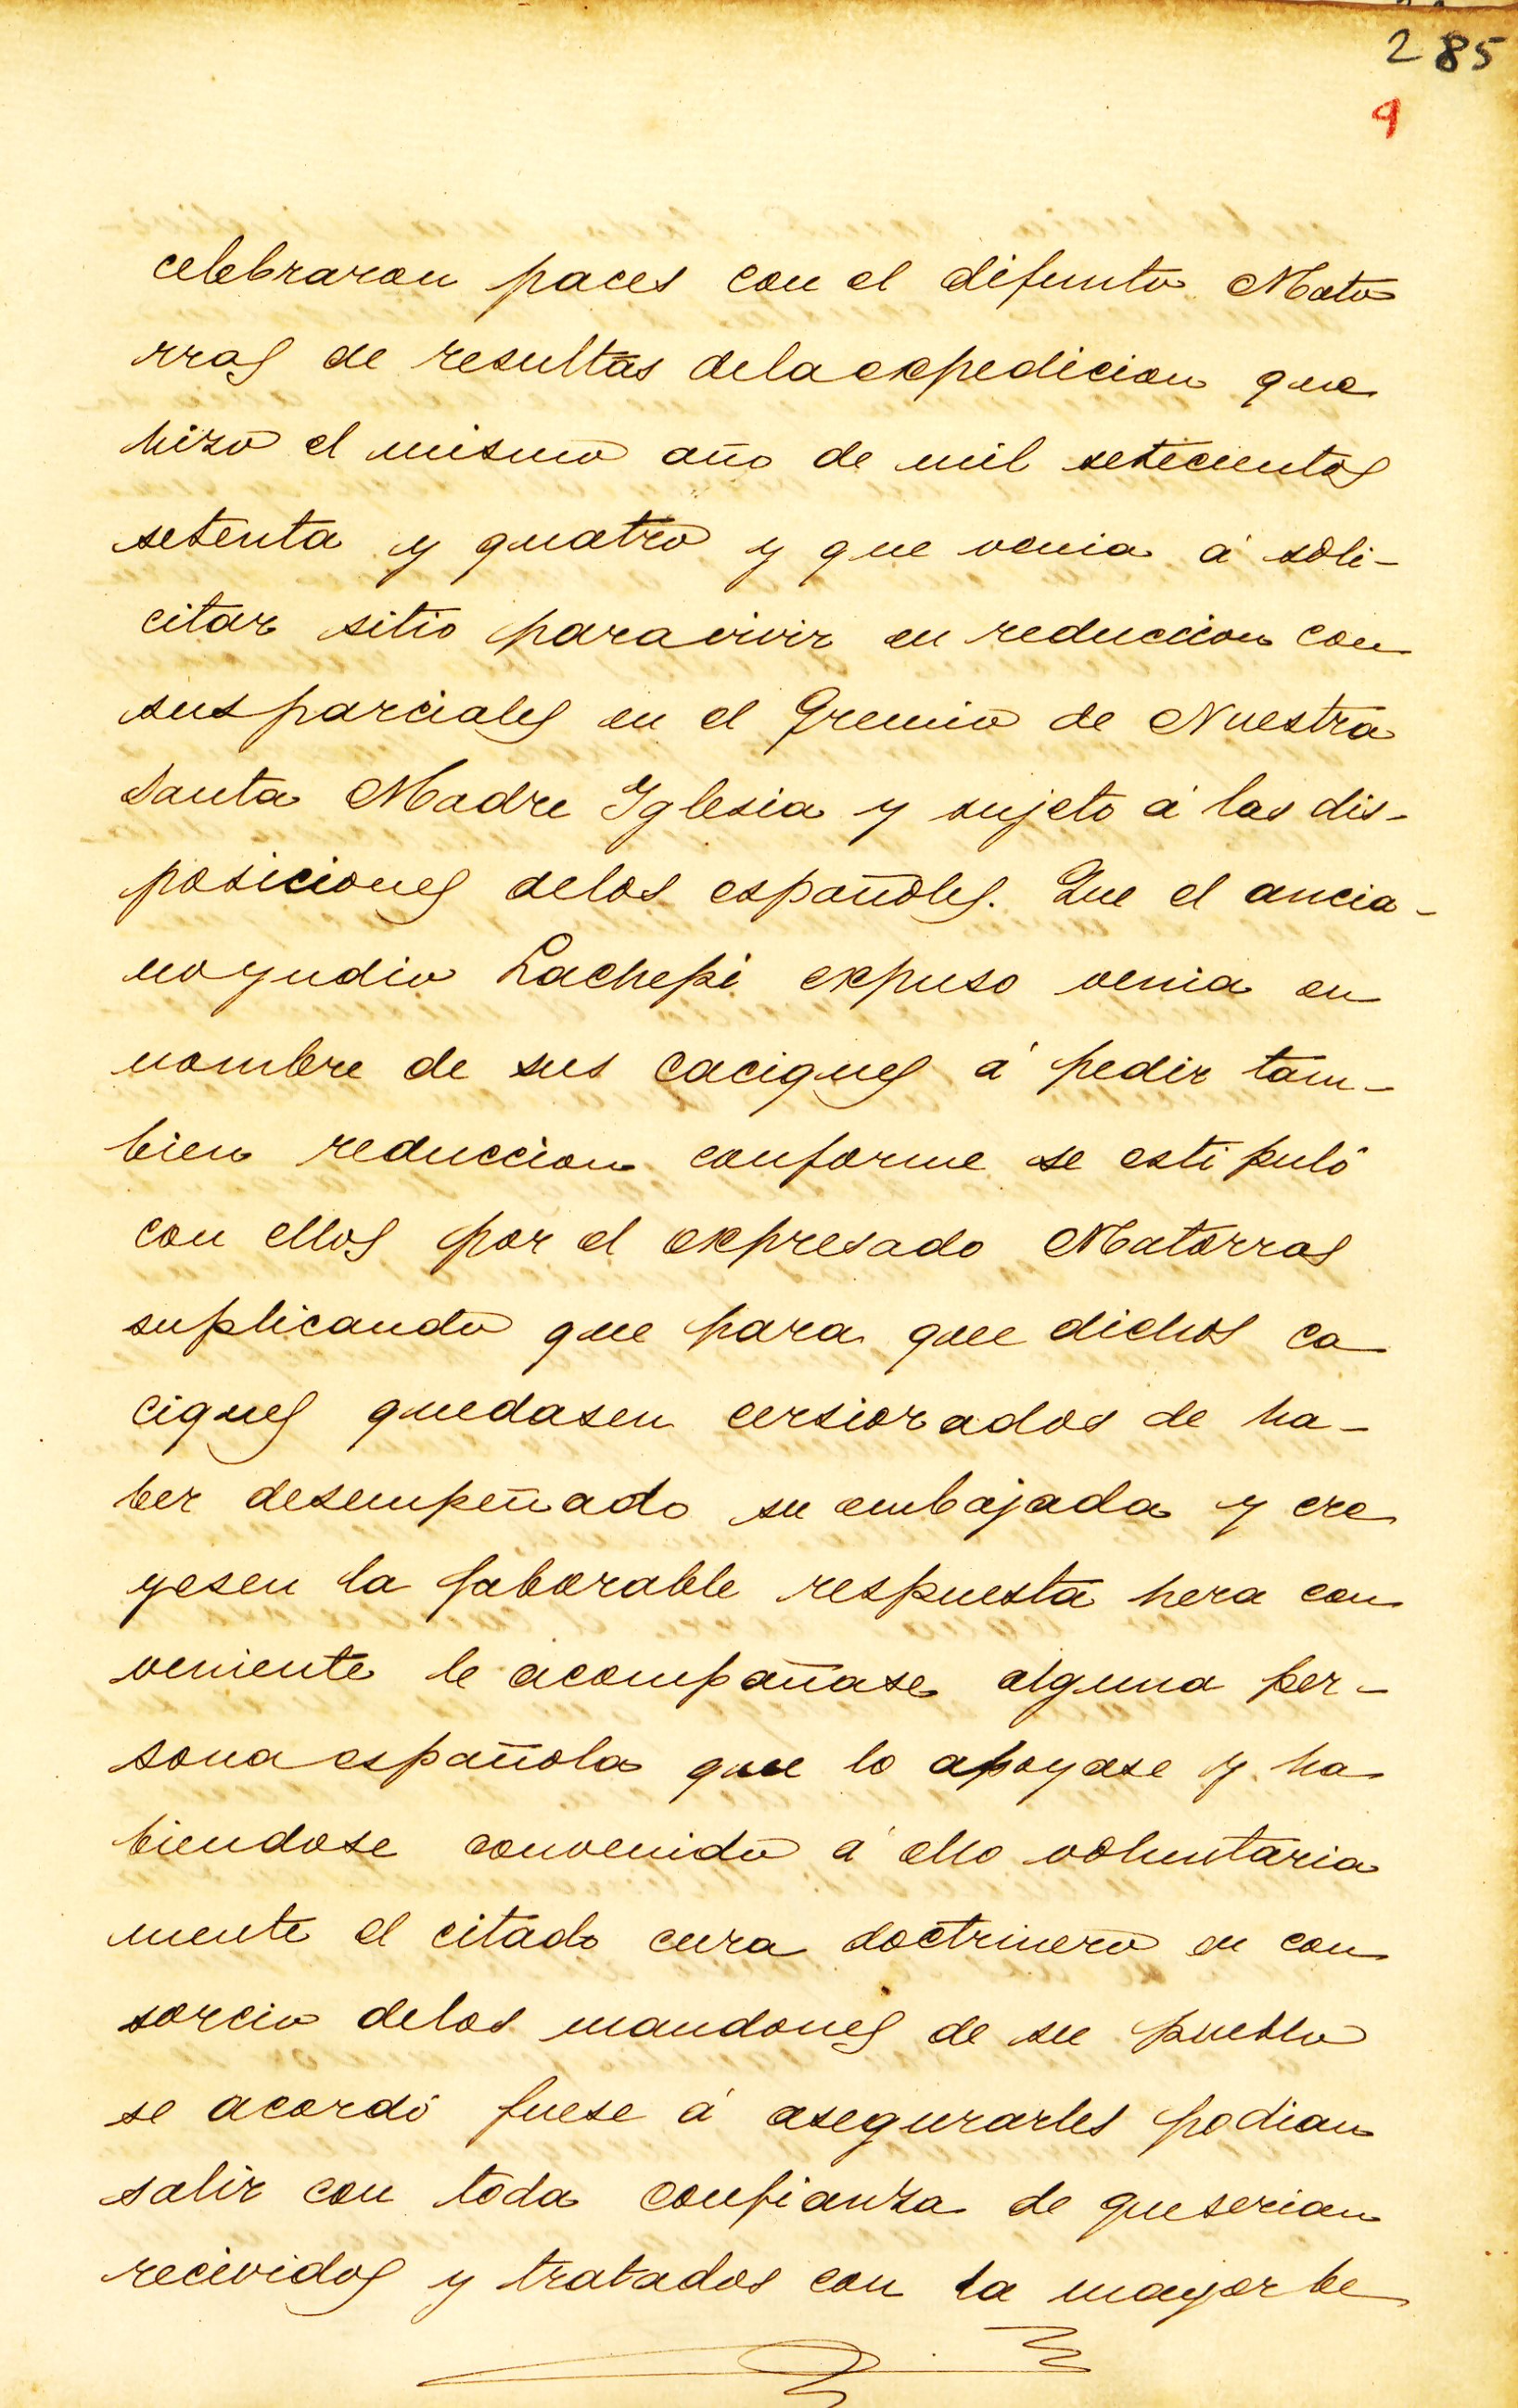 285
9
celebraron paces con el difunto Mato
rras de resultas dela expedicion que
hizo el mismo año de mil setecientos
setenta y quatro y que venia á soli-
citar sitio para vivir en reduccion con
sus parciales en el Gremio de Nuestra
Santa Madre Yglesia y sujeto á las dis-
posiciones delos españoles. Que el ancia-
no yndio Lachepi expuso venia en
nombre de sus caciques á pedir tam-
bien reduccion conforme se estipuló
con ellos por el expresado Matorras
suplicando que para que dichos ca
ciques quedasen cersiorados de ha-
ber desempeñado su embajada y cre
yesen la faborable respuesta hera con
veniente le acompañase alguna per-
sona española que lo apoyase y ha
biendose convenido á ello voluntaria
mente el citado cura doctrinero en con
sorcio delos mandones de su pueblo
se acordó fuese á asegurarles podian
salir con toda confianza de que serian
recividos y tratados con la mayor be